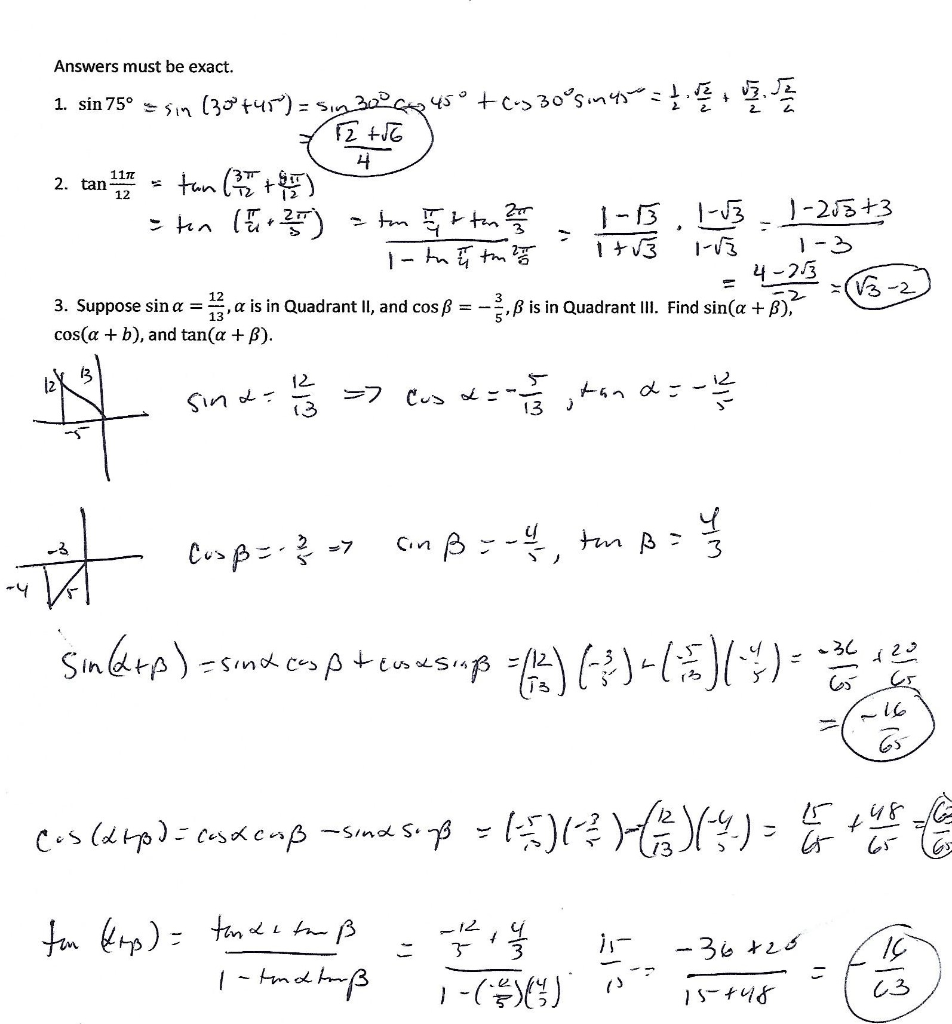 Answers must be exact.
1. sin 75° = sin (30°+45°) = sin 30° cos 45° + cos 30° sin 45° = 1/2 · √2/2 + √3/2 · √2/2
= (√2 + √6)/4
2. tan 11π/12 = tan (3π/12 + 8π/12)
= tan (π/4 + 2π/3) = (tan π/4 + tan 2π/3)/(1 - tan π/4 tan 2π/3) = (1-√3)/(1+√3) · (1-√3)/(1-√3) = (1-2√3+3)/(1-3)
= (4-2√3)/-2 = √3-2
3. Suppose sin α = 12/13, α is in Quadrant II, and cos β = −3/5, β is in Quadrant III. Find sin(α + β),
cos(α + b), and tan(α + β).
12 13
-5
sin α = 12/13 => cos α = -5/13, tan α = -12/5
-3
-4 5
cos β = -3/5 => sin β = -4/5, tan β = 4/3
sin(α+β) = sin α cos β + cos α sin β = (12/13)(-3/5) + (-5/13)(-4/5) = -36/65 + 20/65
= -16/65
cos(α+β) = cos α cos β - sin α sin β = (-5/13)(-3/5) - (12/13)(-4/5) = 15/65 + 48/65 = 63/65
tan(α+β) = (tan α + tan β)/(1 - tan α tan β) = (-12/5 + 4/3)/(1-(-12/5)(4/3)) · 15/15 = (-36+20)/(15+48) = -16/63